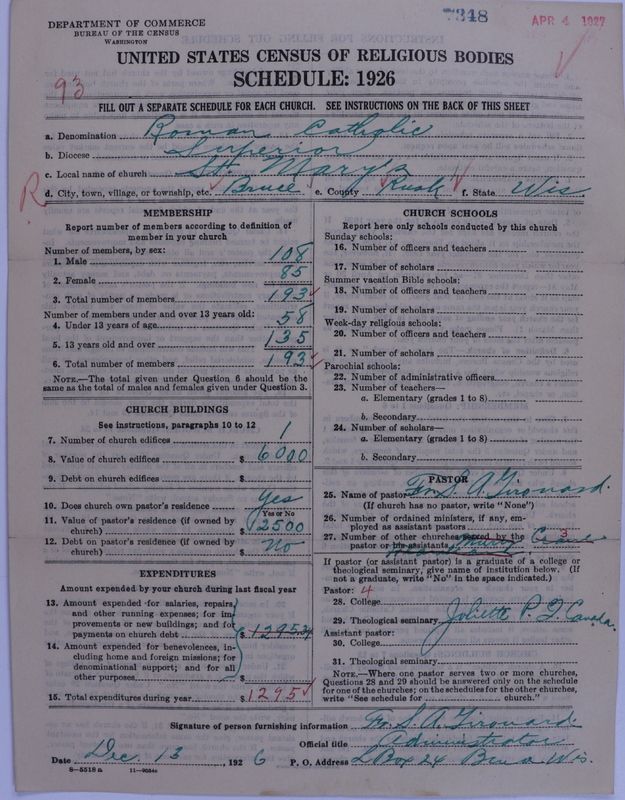 DEPARTMENT OF COMMERCE
BUREAU OF THE CENSUS
WASHINGTON
7248
APR 4 1927
UNITED STATES CENSUS OF RELIGIOUS BODIES
SCHEDULE: 1926
93
FILL OUT A SEPARATE SCHEDULE FOR EACH CHURCH. SEE INSTRUCTIONS ON THE BACK OF THIS SHEET
a. Denomination Roman Catholic
b. Diocese Superior
c. Local name of church St. Mary's
R d. City, town, village, or township, etc. Bruce e. County Rusk f. State Wis
MEMBERSHIP
Report number of members according to definition of
member in your church
Number of members, by sex:
1. Male 108
2. Female 85
3. Total number of members 193
Number of members under and over 13 years old:
4. Under 13 years of age 58
5. 13 years old and over 135
6. Total number of members 193
NOTE.—The total given under Question 6 should be
the same as the total of males and females given under Question 3.
CHURCH BUILDINGS
See instructions, paragraphs 10 to 12
7. Number of church edifices 1
8. Value of church edifices $ 6000
9. Debt on church edifices $
10. Does church own pastor's residence Yes
Yes or No
11. Value of pastor's residence (if owned by
church) $ 2500
12. Debt on pastor's residence (if owned by
church) $ No
EXPENDITURES
Amount expended by your church during last fiscal year
13. Amount expended for salaries, repairs,
and other running expenses; for im-
provements or new buildings; and for
payments on church debt $ 1295.34
14. Amount expended for benevolences, in-
cluding home and foreign missions; for
denominational support; and for all
other purposes $
15. Total expenditures during year $ 1295
CHURCH SCHOOLS
Report here only schools conducted by this church
Sunday schools:
16. Number of officers and teachers
17. Number of scholars
Summer vacation Bible schools:
18. Number of officers and teachers
19. Number of scholars
Week-day religious schools:
20. Number of officers and teachers
21. Number of scholars
Parochial schools:
22. Number of administrative officers
23. Number of teachers—
a. Elementary (grades 1 to 8)
b. Secondary
24. Number of scholars—
a. Elementary (grades 1 to 8)
b. Secondary
PASTOR
25. Name of pastor Fr. S. A. Girouard.
(If church has no pastor, write "None")
26. Number of ordained ministers, if any, em-
ployed as assistant pastors
27. Number of other churches served by the
pastor or his assistants 3
If pastor (or assistant pastor) is a graduate of a college or
theological seminary, give name of institution below. (If
not a graduate, write "No" in the space indicated.)
Pastor: 4
28. College
29. Theological seminary Joliette P. Q. Canada.
Assistant pastor:
30. College
31. Theological seminary
NOTE.—Where one pastor serves two or more churches,
Questions 28 and 29 should be answered only on the schedule
for one of the churches; on the schedules for the other churches,
write "See schedule for church."
Signature of person furnishing information Fr. S. A. Girouard
Official title Administrator
Date Dec. 13, 1926 P. O. Address L Box 24 Bruce Wis.
8—5518 a 11—9034